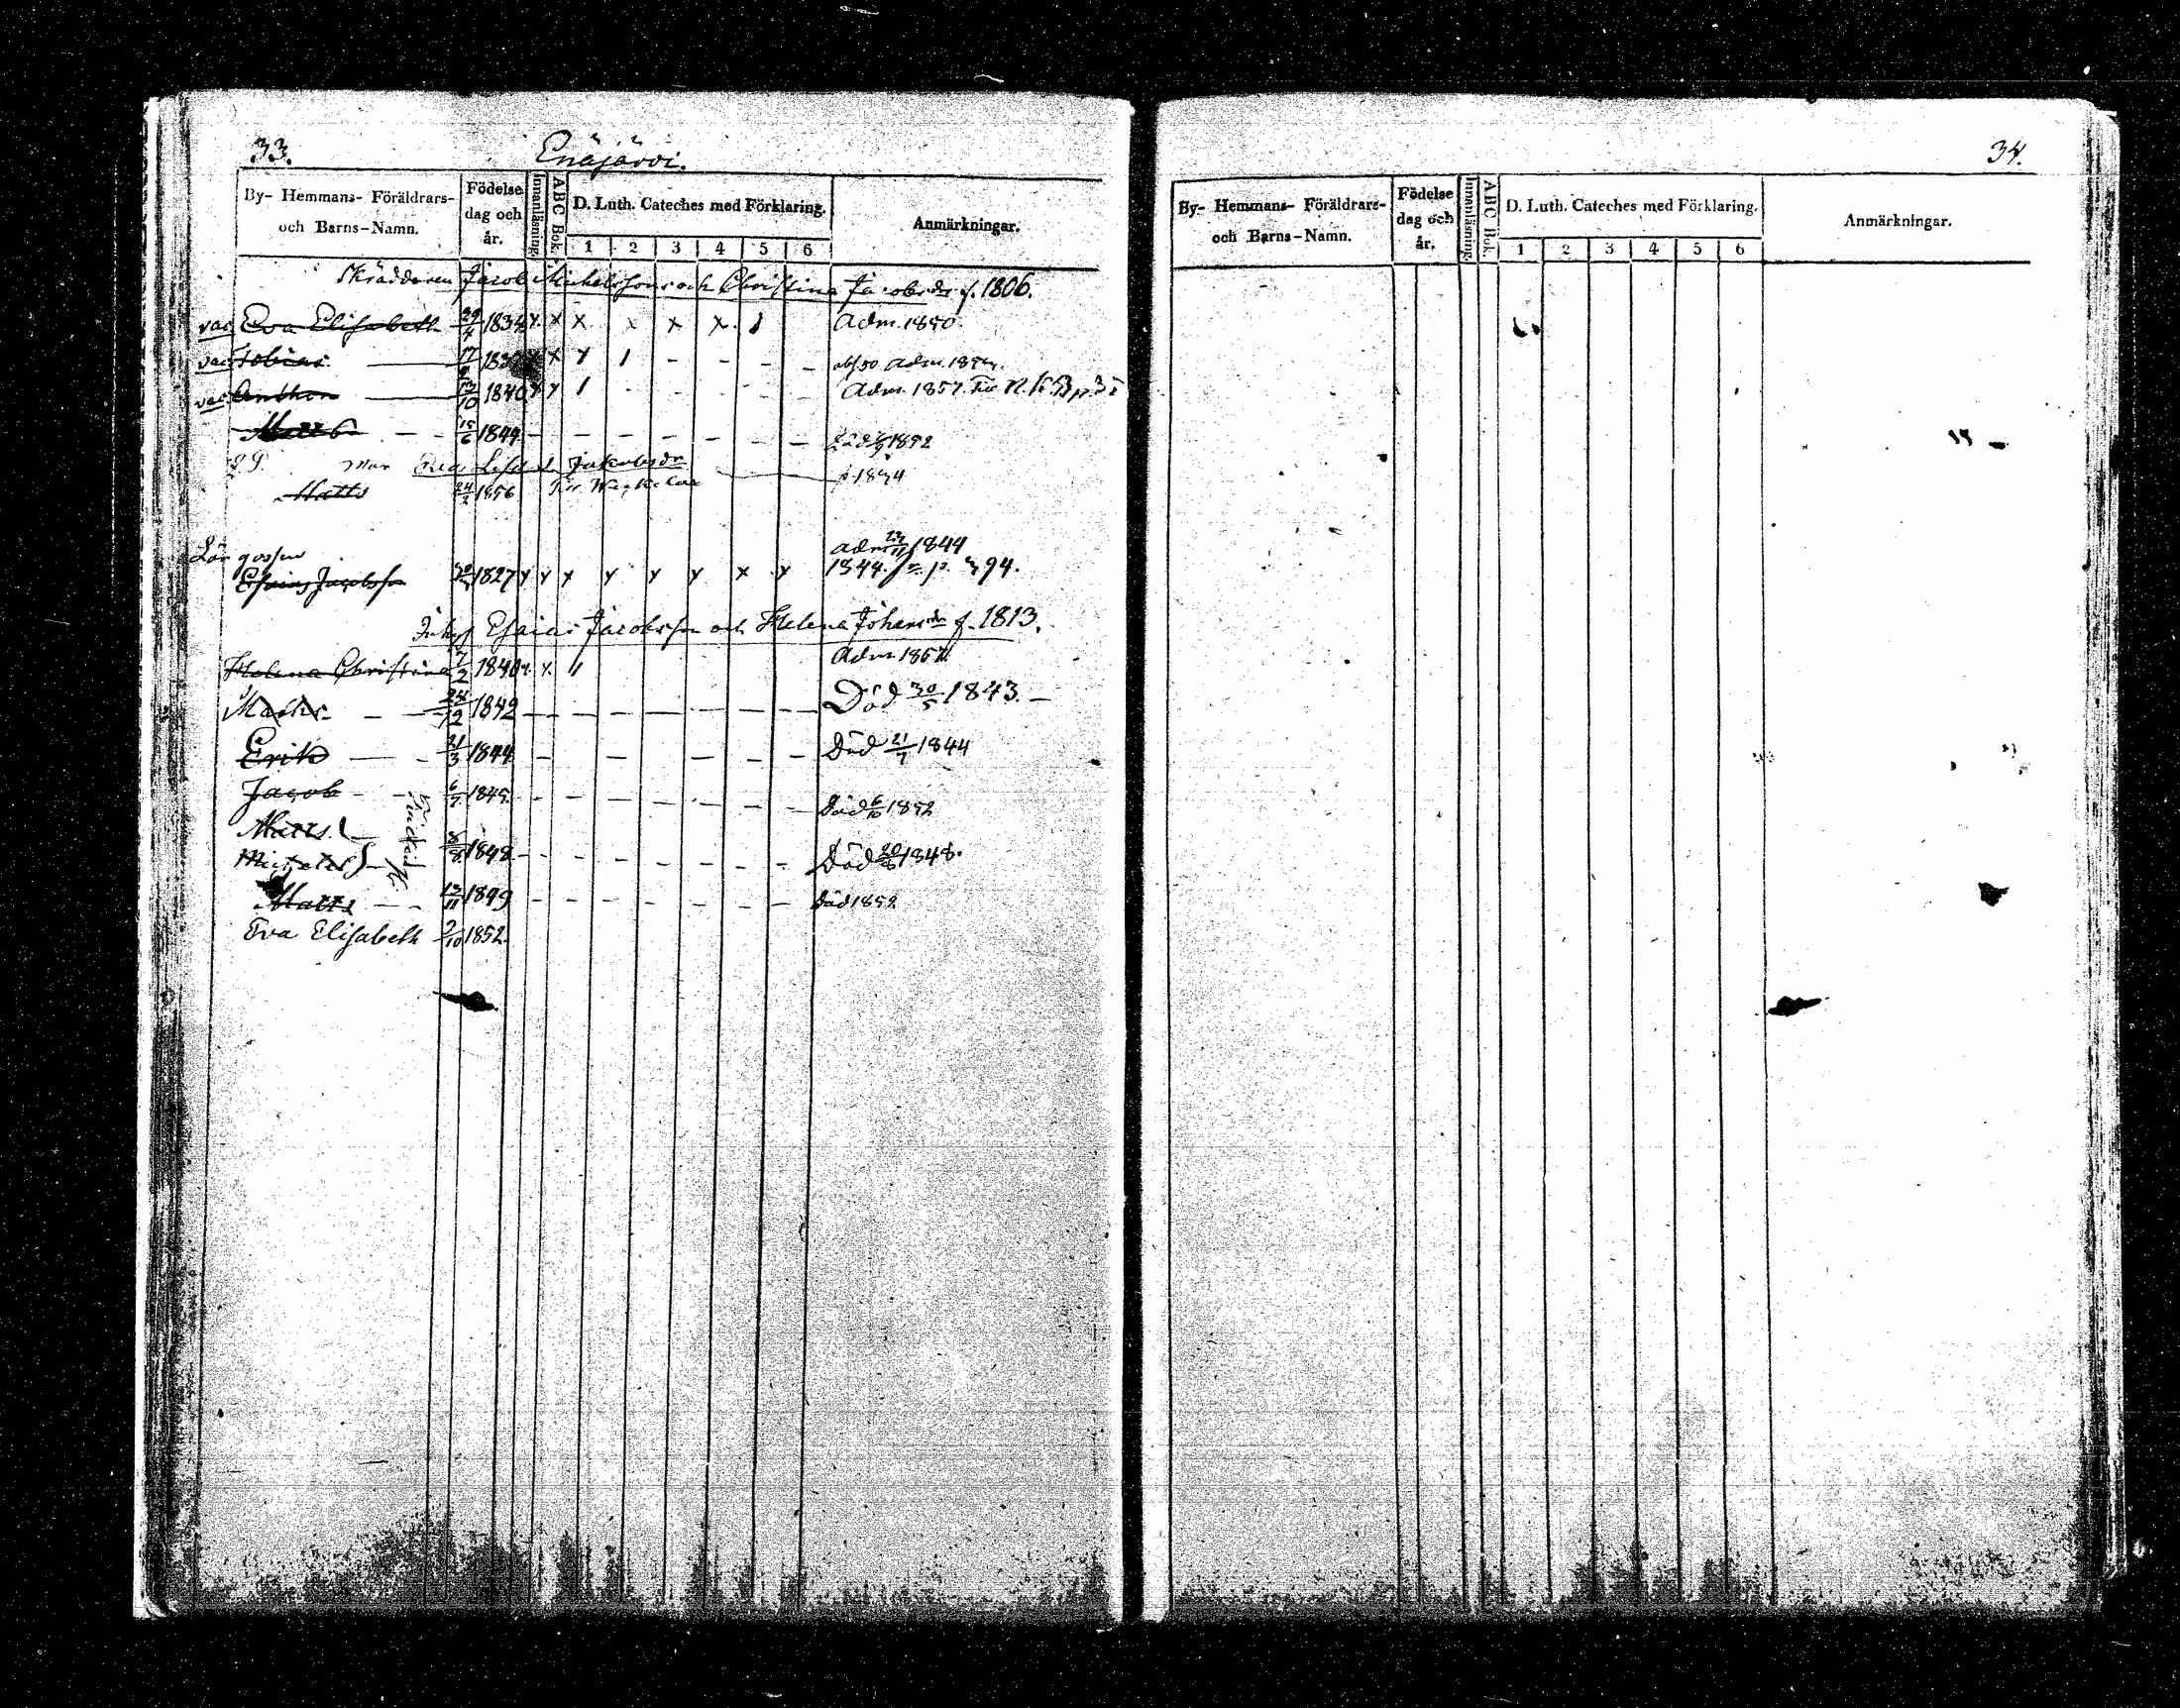 33.
Enäjärvi.
By- Hemmans- Föräldrars- och Barns-Namn.
Födelse dag och år.
Innanläsning.
ABC Bok.
D. Luth. Cateches med Förklaring.
1 2 3 4 5 6
Anmärkningar.
Skräddaren Jacob Michelsson och Christina Jacobsdr f. 1806.
vac Eva Elisabeth 29/4 1834 x x x x x x Adm. 1850.
vac Tobias 17 x x Adm.
vac Anthon 13/10 1840 Adm. 1857.
Matts 15/6 1844 Död 1852
Eva Jakobsdr
Matts 24/2 1856
Lär gossen adm 1844
Esaias Jacobsson 1827 x x x x x x x x 1844. p. 394.
Inhys Esaias Jacobsson och Helena Johansdr f. 1813.
Helena Christina 7/2 1840 Adm
Matts 1842 Död 30/5 1843.
Erik 21/3 1844 Död 21/7 1844
Jacob 6/7 1845 Död 6/10 1852
Matts
Michel 8/8 1848 Död 1848.
Matts 13/11 1849 Död 1852
Eva Elisabeth 9/10 1852.
34.
By- Hemmans- Föräldrars- och Barns-Namn.
Födelse dag och år.
Innanläsning.
ABC Bok.
D. Luth. Cateches med Förklaring.
1 2 3 4 5 6
Anmärkningar.